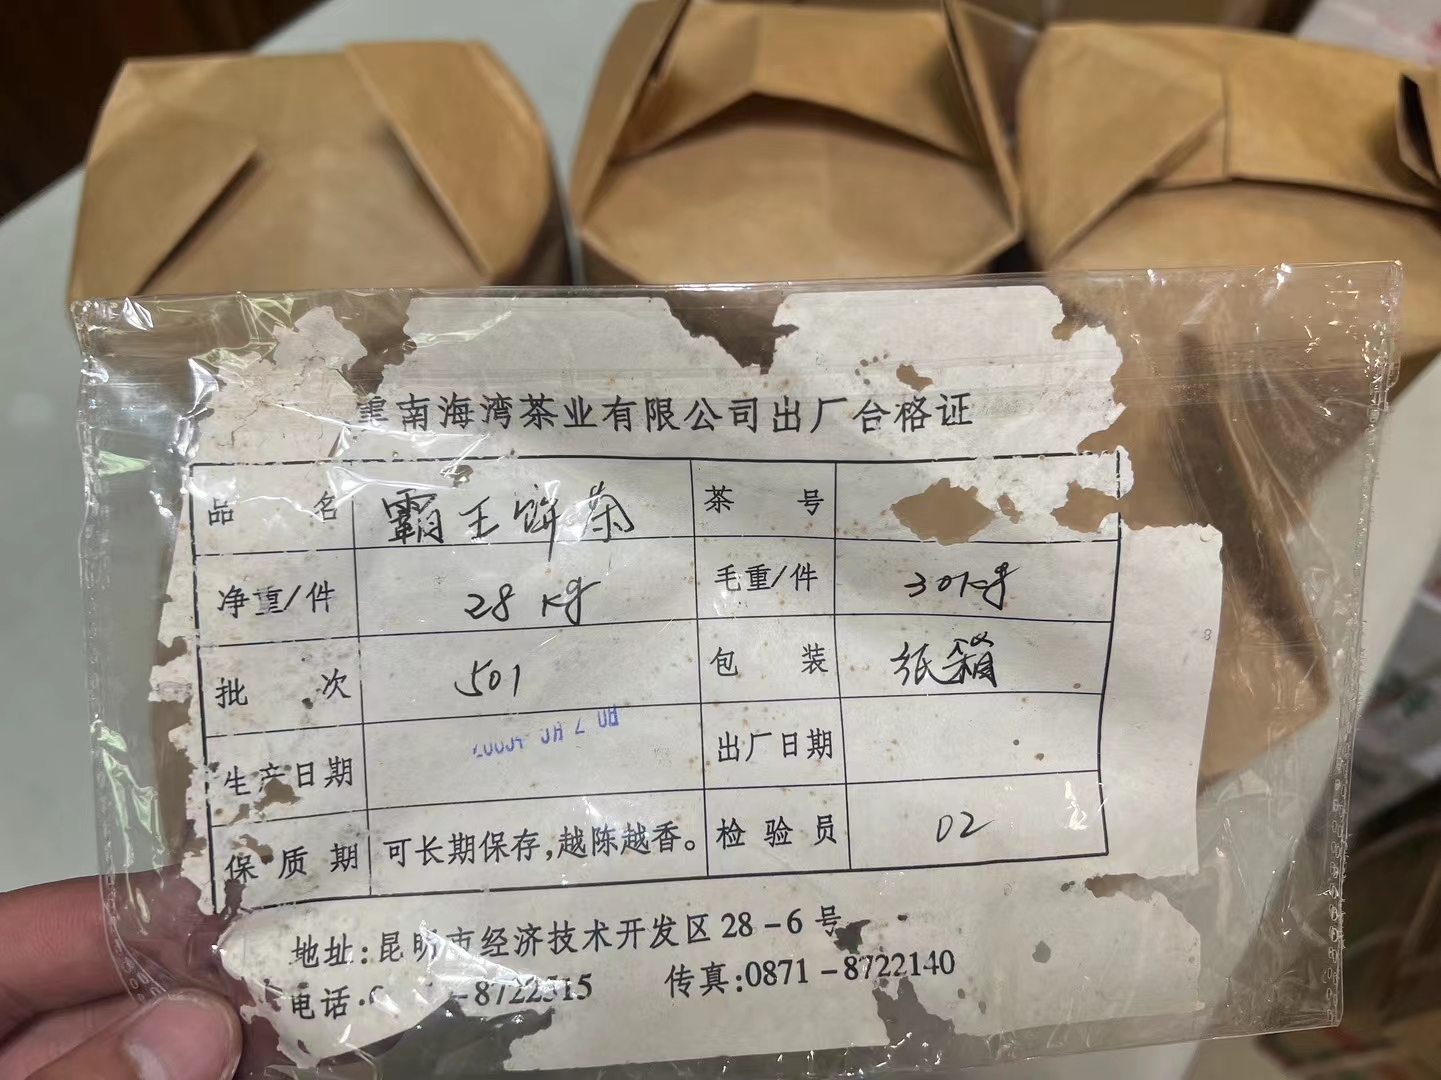 雲南海湾茶业有限公司出厂合格证
品名 霸王饼茶 茶号
净重/件 28 kg 毛重/件 30kg
批次 501 包装 纸箱
生产日期 出厂日期
保质期 可长期保存,越陈越香。 检验员 02
地址:昆明市经济技术开发区28-6号
电话: -8722515 传真:0871-8722140